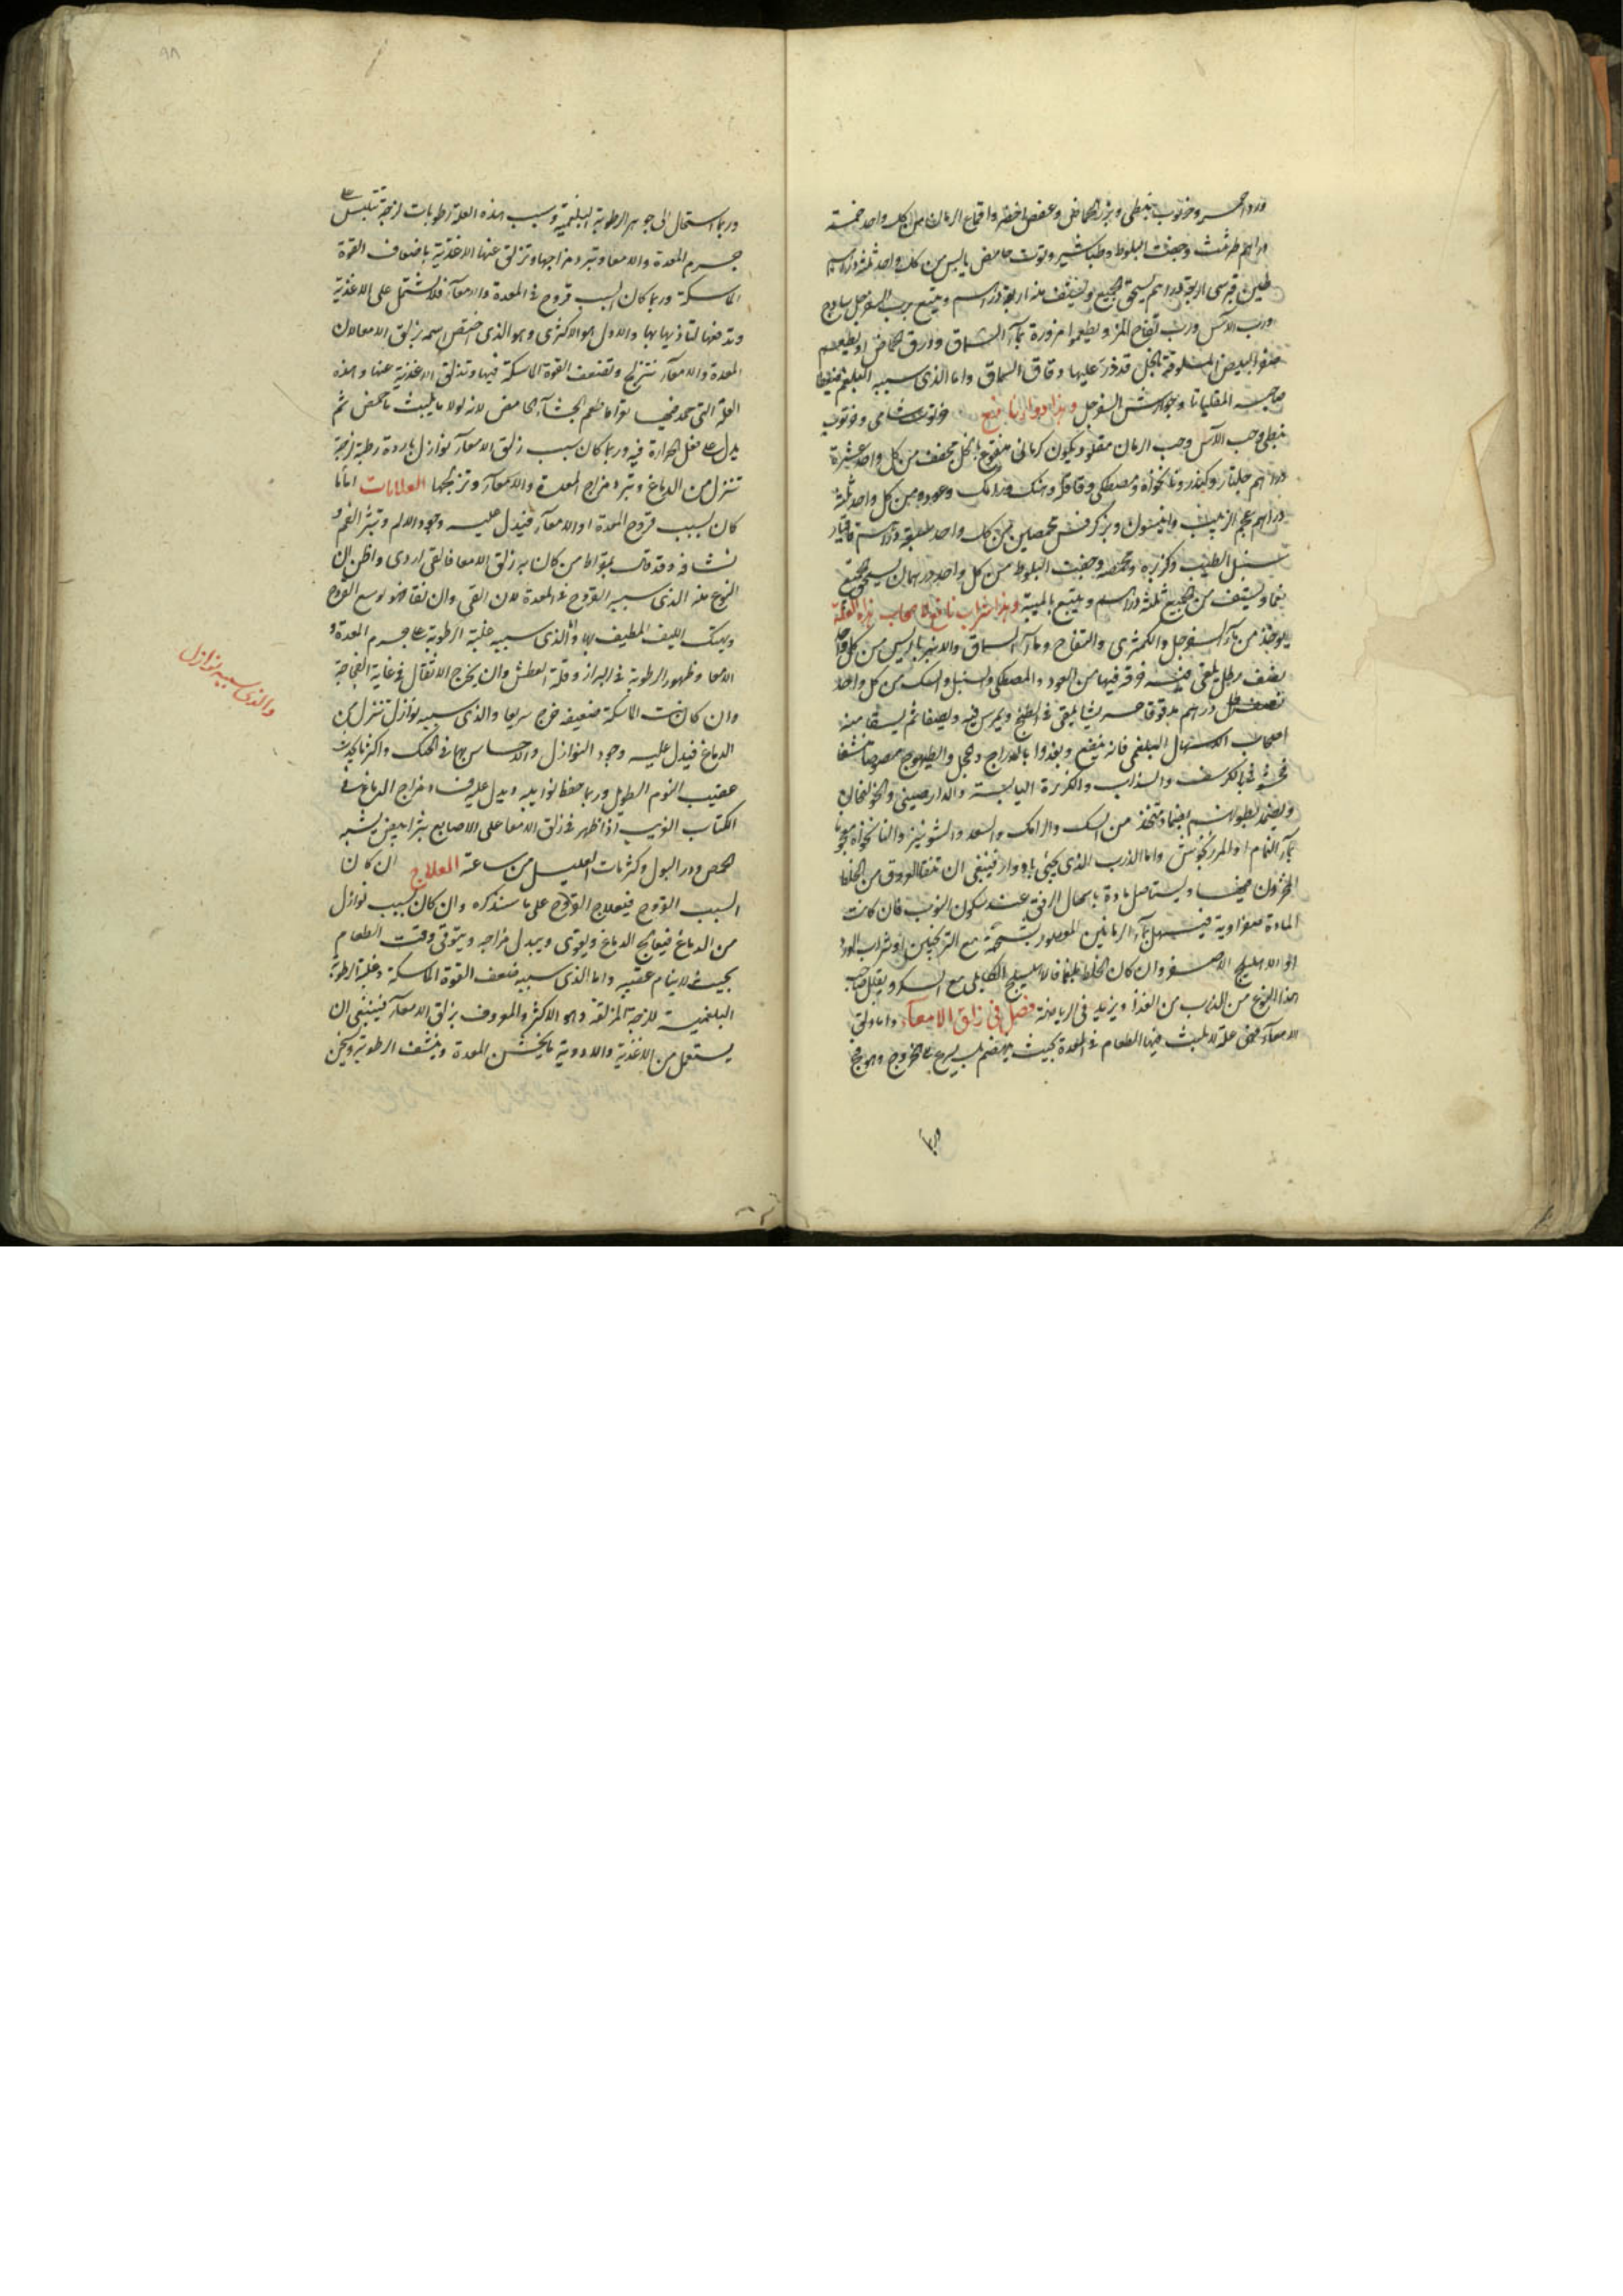 ورد احمر وخرنوب نبطى وبزر الحماض وعفص اخضر واقماع الرمان من كل واحد خمسة
دراهم طرثيث وجفت البلوط وطباشير وتوت حامض يابس من كل واحد ثلثة دراهم
طين قبرسى اربعة دراهم يسحق الجميع ويستف منه اربعة دراهم ويتبع برب السفرجل ساذج
ورب الآس ورب تفاح المز ويطعموا مزورة بماء السماق وورق الحماض او يطعم
صفر البيض المسلوقة بالخل قد ذر عليها دقاق السماق واما الذى سببه البلغم فيعطا
صاحبه المقلياثا وجوارشن السفرجل وهذا دواء نافع خرنوب شامى وخرنوب
نبطى وحب الآس وحب الرمان مقلو وكمون كرمانى منقوع بالخل مجفف من كل واحد عشرة
دراهم جلنار وكندر ونانخواه ومصطكى وقاقلة وسك ورامك وعود من كل واحد ثلثة
دراهم عجم الزبيب وانيسون وبزر كرفس محمصين من كل واحد دراهم قاقيا
سنبل الطيب وكزبرة محمصة وجفت البلوط من كل واحد درهمان يسحق الجميع
ناعما ويستف من الجميع ثلثة دراهم ويتبع بالميبة وهذا شراب نافع لاصحاب هذه العلة
يوخذ من ماء السفرجل والكمثرى والتفاح وماء السماق والامبرباريس من كل واحد
نصف رطل يلقى فيه خرقة فيها من العود والمصطكى والسنبل والسك من كل واحد
نصف درهم مدقوقا جريشا يلقى فى الطبخ ويمرس فيه ويصفا ثم يسقا منه
اصحاب الاسهال البلغمى فانه ينفع ويغذوا بالدراج والحجل والطيهوج مصوصا منشفا
محشوة بالكرفس والسذاب والكزبرة اليابسة والدارصينى والخولنجان
ويضمد بطونهم بضماد متخذ من السك والرامك والسعد والشونيز والنانخواه معجونا
بماء النمام او المرزنجوش واما الذرب الذى يجئ بادوار فينبغى ان تنقا العروق من الخلط
المخزون فيها ويستاصل مادة باسهال الرفيق عند سكون النوب فان كانت
المادة صفراوية فيسهل بماء الرمانين المعصور بشحمه مع الترنجبين او شراب الورد
او الاهليلج الاصفر وان كان الخلط بلغما فالاهليلج الكابلى مع السكر ويقلل صاحب
هذا النوع من الذرب من الغذاء ويزيد فى الرياضة فصل فى زلق الامعاء واما زلق
الامعاء فهى علة لا يلبث فيها الطعام فى المعدة بحيث ينهضم بل يسرع الخروج وهو فج
وربما
وربما استحال الى جوهر الرطوبة البلغمية وسبب هذه العلة رطوبات لزجة تتلبس على
جرم المعدة والامعا وتبرد مزاجها وتزلق عنها الاغذية باضعاف القوة
الماسكة وربما كان السبب قروح فى المعدة والامعاء فلا تشتمل على الاغذية
وتدفعها لتاذيها بها والاول هو الاكثرى وهو الذى اختص اسمه بزلق الامعا لان
المعدة والامعاء تتزلج وتضعف القوة الماسكة فيها وتزلق الاغذية عنها وهذه
العلة التى حمد فيها بقراط طعم الجشاء الحامض لانه لولا ما يلبث ما حمض ثم
يدل على فعل الحرارة فيه وربما كان سبب زلق الامعاء نوازل باردة رطبة لزجة
تنزل من الدماغ وتبرد مزاج المعدة والامعاء وتزلجها العلامات اما ما
كان بسبب قروح المعدة او الامعاء فيدل عليه وجود الالم وبثر الفم و
نشافه وقد قال بقراط من كان به زلق الامعا فالقى له ردى واظن ان
النوع منه الذى سببه القروح فى المعدة لان القى وان نقاها فهو يوسع القروح
ويهتك الليف المطيف بها واما الذى سببه غلبة الرطوبة على جرم المعدة و
الامعا وظهور الرطوبة فى البراز وقلة العطش وان يخرج الاثقال فى غاية الفجاجة
وان كانت الماسكة ضعيفة خرج سريعا والذى سببه نوازل تنزل من
الدماغ فيدل عليه وجود النوازل والاحساس بها فى الحنك واكثر ما يحدث
عقيب النوم الطويل وربما حفظ نوايبه ويدل عليه فساد مزاج الدماغ فى
الكتاب الغريب اذا ظهر فى زلق الامعا على الاصابع بثر ابيض يشبه
الحمص ودر البول وكثر مات العليل من ساعته العلاج ان كان
السبب القروح فيعالج القروح على ما سنذكره وان كان بسبب نوازل
من الدماغ فيعالج الدماغ ويقوى ويبدل مزاجه ويتوقى وقت الطعام
بحيث لا ينام عقيبه واما الذى سببه ضعف القوة الماسكة وغلبة الرطوبة
البلغمية اللزجة المزلقة وهو الاكثر والمعروف بزلق الامعاء فينبغى ان
يستعمل من الاغذية والادوية ما يخشن المعدة وينشف الرطوبة ويسخن
والذى سببه نوازل
٩٨